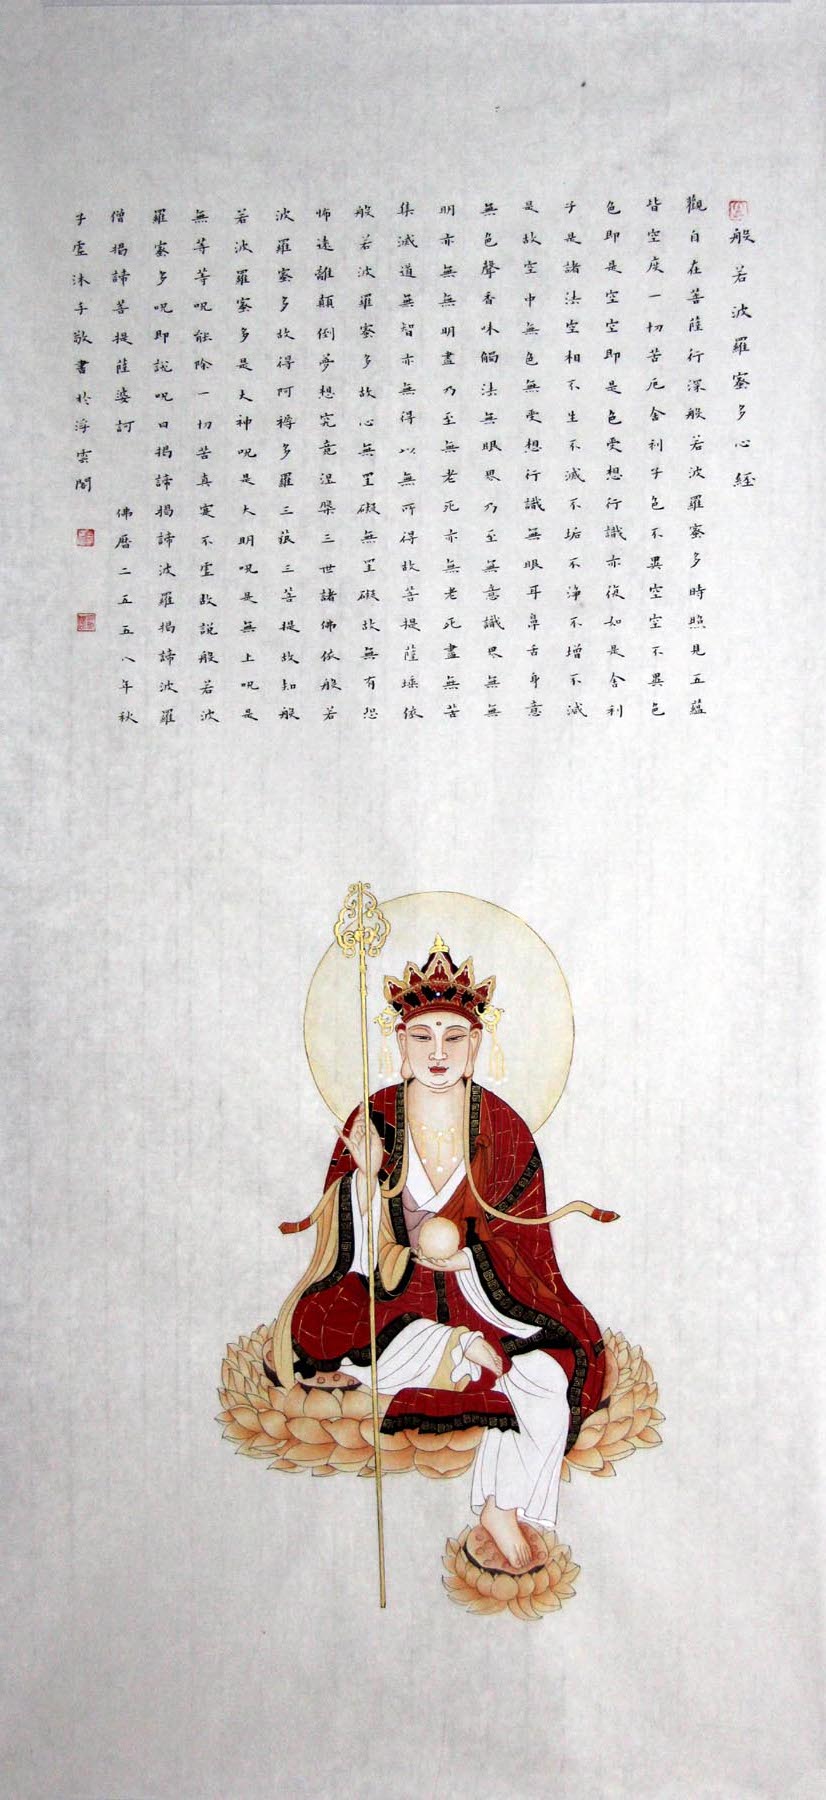 般若波羅蜜多心經
觀自在菩薩行深般若波羅蜜多時照見五蘊
皆空度一切苦厄舍利子色不異空空不異色
色即是空空即是色受想行識亦復如是舍利
子是諸法空相不生不滅不垢不淨不增不減
是故空中無色無受想行識無眼耳鼻舌身意
無色聲香味觸法無眼界乃至無意識界無無
明亦無無明盡乃至無老死亦無老死盡無苦
集滅道無智亦無得以無所得故菩提薩埵依
般若波羅蜜多故心無罣礙無罣礙故無有恐
怖遠離顛倒夢想究竟涅槃三世諸佛依般若
波羅蜜多故得阿耨多羅三藐三菩提故知般
若波羅蜜多是大神呪是大明呪是無上呪是
無等等呪能除一切苦真實不虛故說般若波
羅蜜多呪即說呪曰揭諦揭諦波羅揭諦波羅
僧揭諦菩提薩婆訶 佛曆二五五八年秋
子虛沐手敬書於浮雲閣